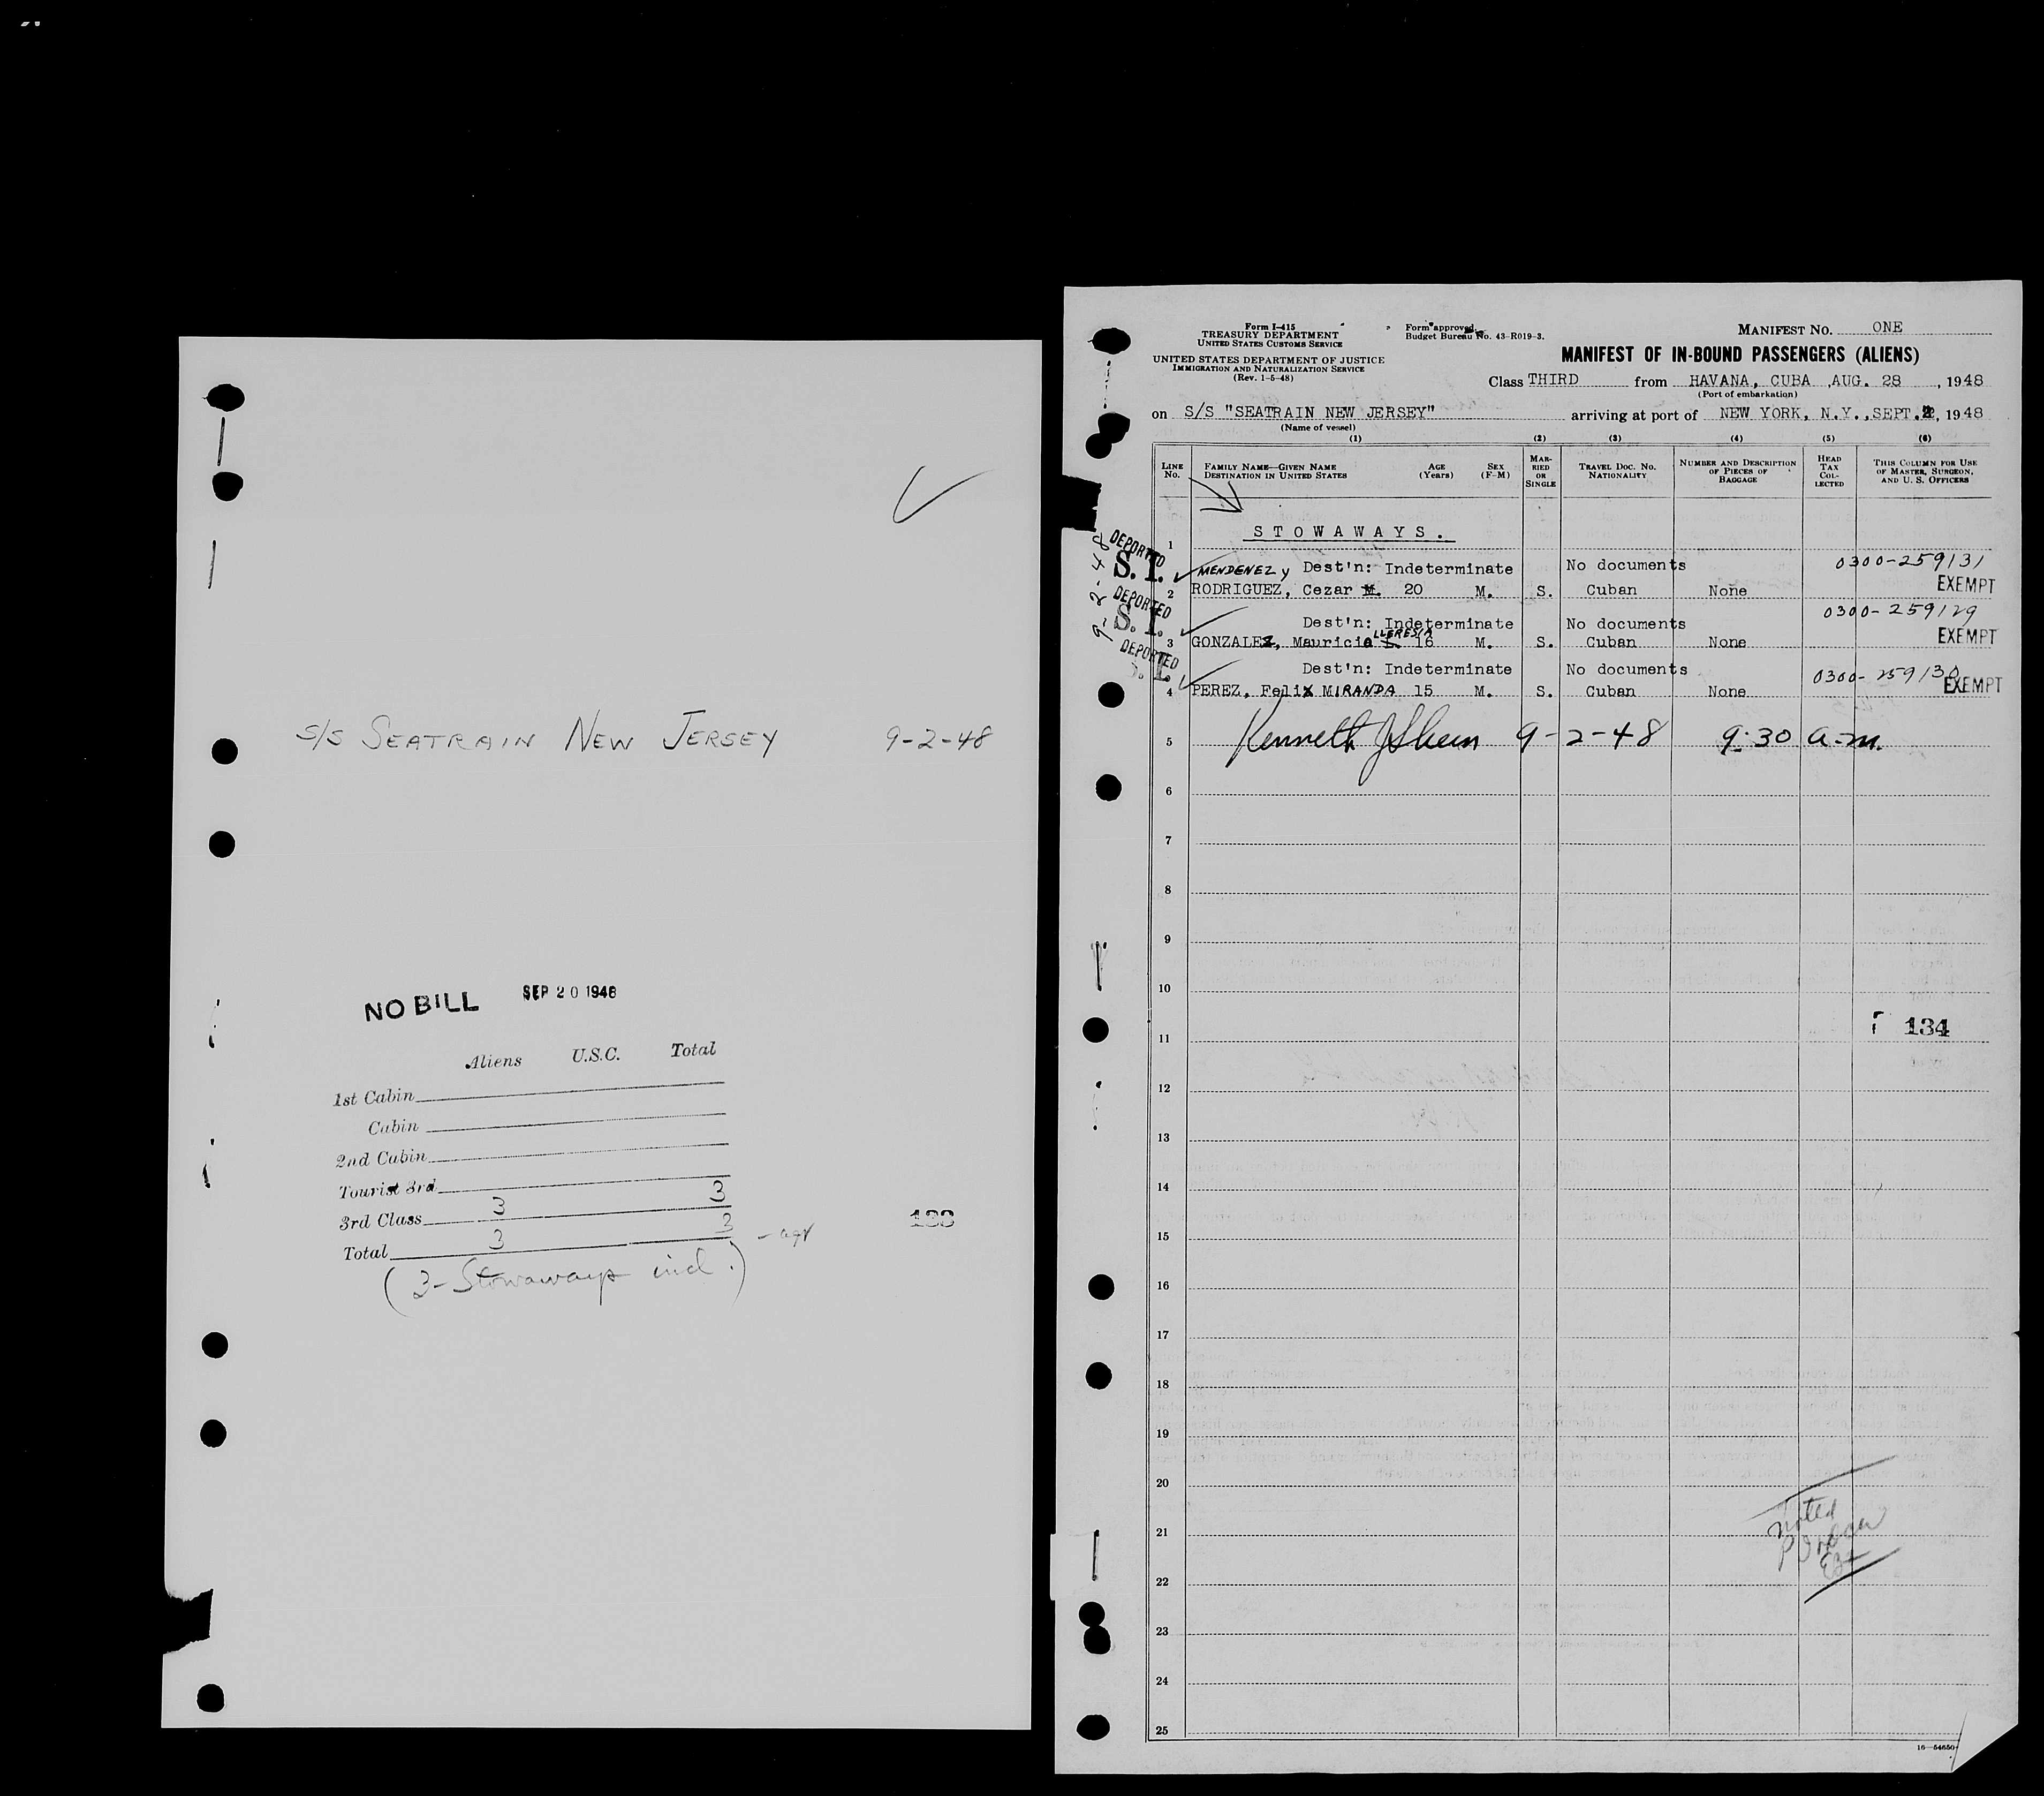 S/S SEATRAIN NEW JERSEY 9-2-48
NO BILL SEP 20 1948
Aliens U.S.C. Total
1st Cabin
Cabin
2nd Cabin
Tourist 3rd
3rd Class 3 3
Total 3 3
(3-Stowaways incl.)
133
Form I-415
TREASURY DEPARTMENT
UNITED STATES CUSTOMS SERVICE
UNITED STATES DEPARTMENT OF JUSTICE
IMMIGRATION AND NATURALIZATION SERVICE
(Rev. 1-5-48)
Form approved.
Budget Bureau No. 43-R019-3.
MANIFEST NO. ONE
MANIFEST OF IN-BOUND PASSENGERS (ALIENS)
Class THIRD from HAVANA, CUBA, AUG. 28, 1948
(Port of embarkation)
on S/S "SEATRAIN NEW JERSEY" arriving at port of NEW YORK, N.Y., SEPT. 2, 1948
(Name of vessel)
(1) (2) (3) (4) (5) (6)
LINE NO. FAMILY NAME—GIVEN NAME DESTINATION IN UNITED STATES AGE (Years) SEX (F-M) MARRIED OR SINGLE TRAVEL DOC. NO. NATIONALITY NUMBER AND DESCRIPTION OF PIECES OF BAGGAGE HEAD TAX COLLECTED THIS COLUMN FOR USE OF MASTER, SURGEON, AND U. S. OFFICERS
STOWAWAYS.
1
9-2-48
DEPORTED S.I. MENDENEZ y Dest'n: Indeterminate No documents 0300-259131
2 RODRIGUEZ, Cezar M. 20 M. S. Cuban None EXEMPT
DEPORTED S.I. Dest'n: Indeterminate No documents 0300-259129
3 GONZALEZ, Mauricio L. LLERESIA 16 M. S. Cuban None EXEMPT
DEPORTED S.I. Dest'n: Indeterminate No documents 0300-259130
4 PEREZ, Felix MIRANDA 15 M. S. Cuban None EXEMPT
5 Kenneth J Sheen 9-2-48 9:30 a.m.
6
7
8
9
10
134
11
12
13
14
15
16
17
18
19
20
noted
21
22
23
24
25